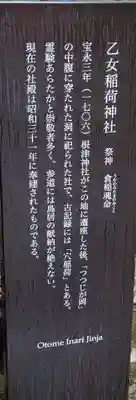 乙女稲荷神社
祭神 倉稲魂命
うかのみたまのみこと
宝永三年(一七〇六)根津神社がこの地に遷座した後、「つつじが岡」
の中腹に穿たれた洞に祀られた社で、古記録には「穴稲荷」とある。
霊験あらたかと崇敬者多く、奉道には鳥居の献納が絶えない。
現在の社殿は昭和三十一年に奉建されたものである。
Otome Inari Jinja